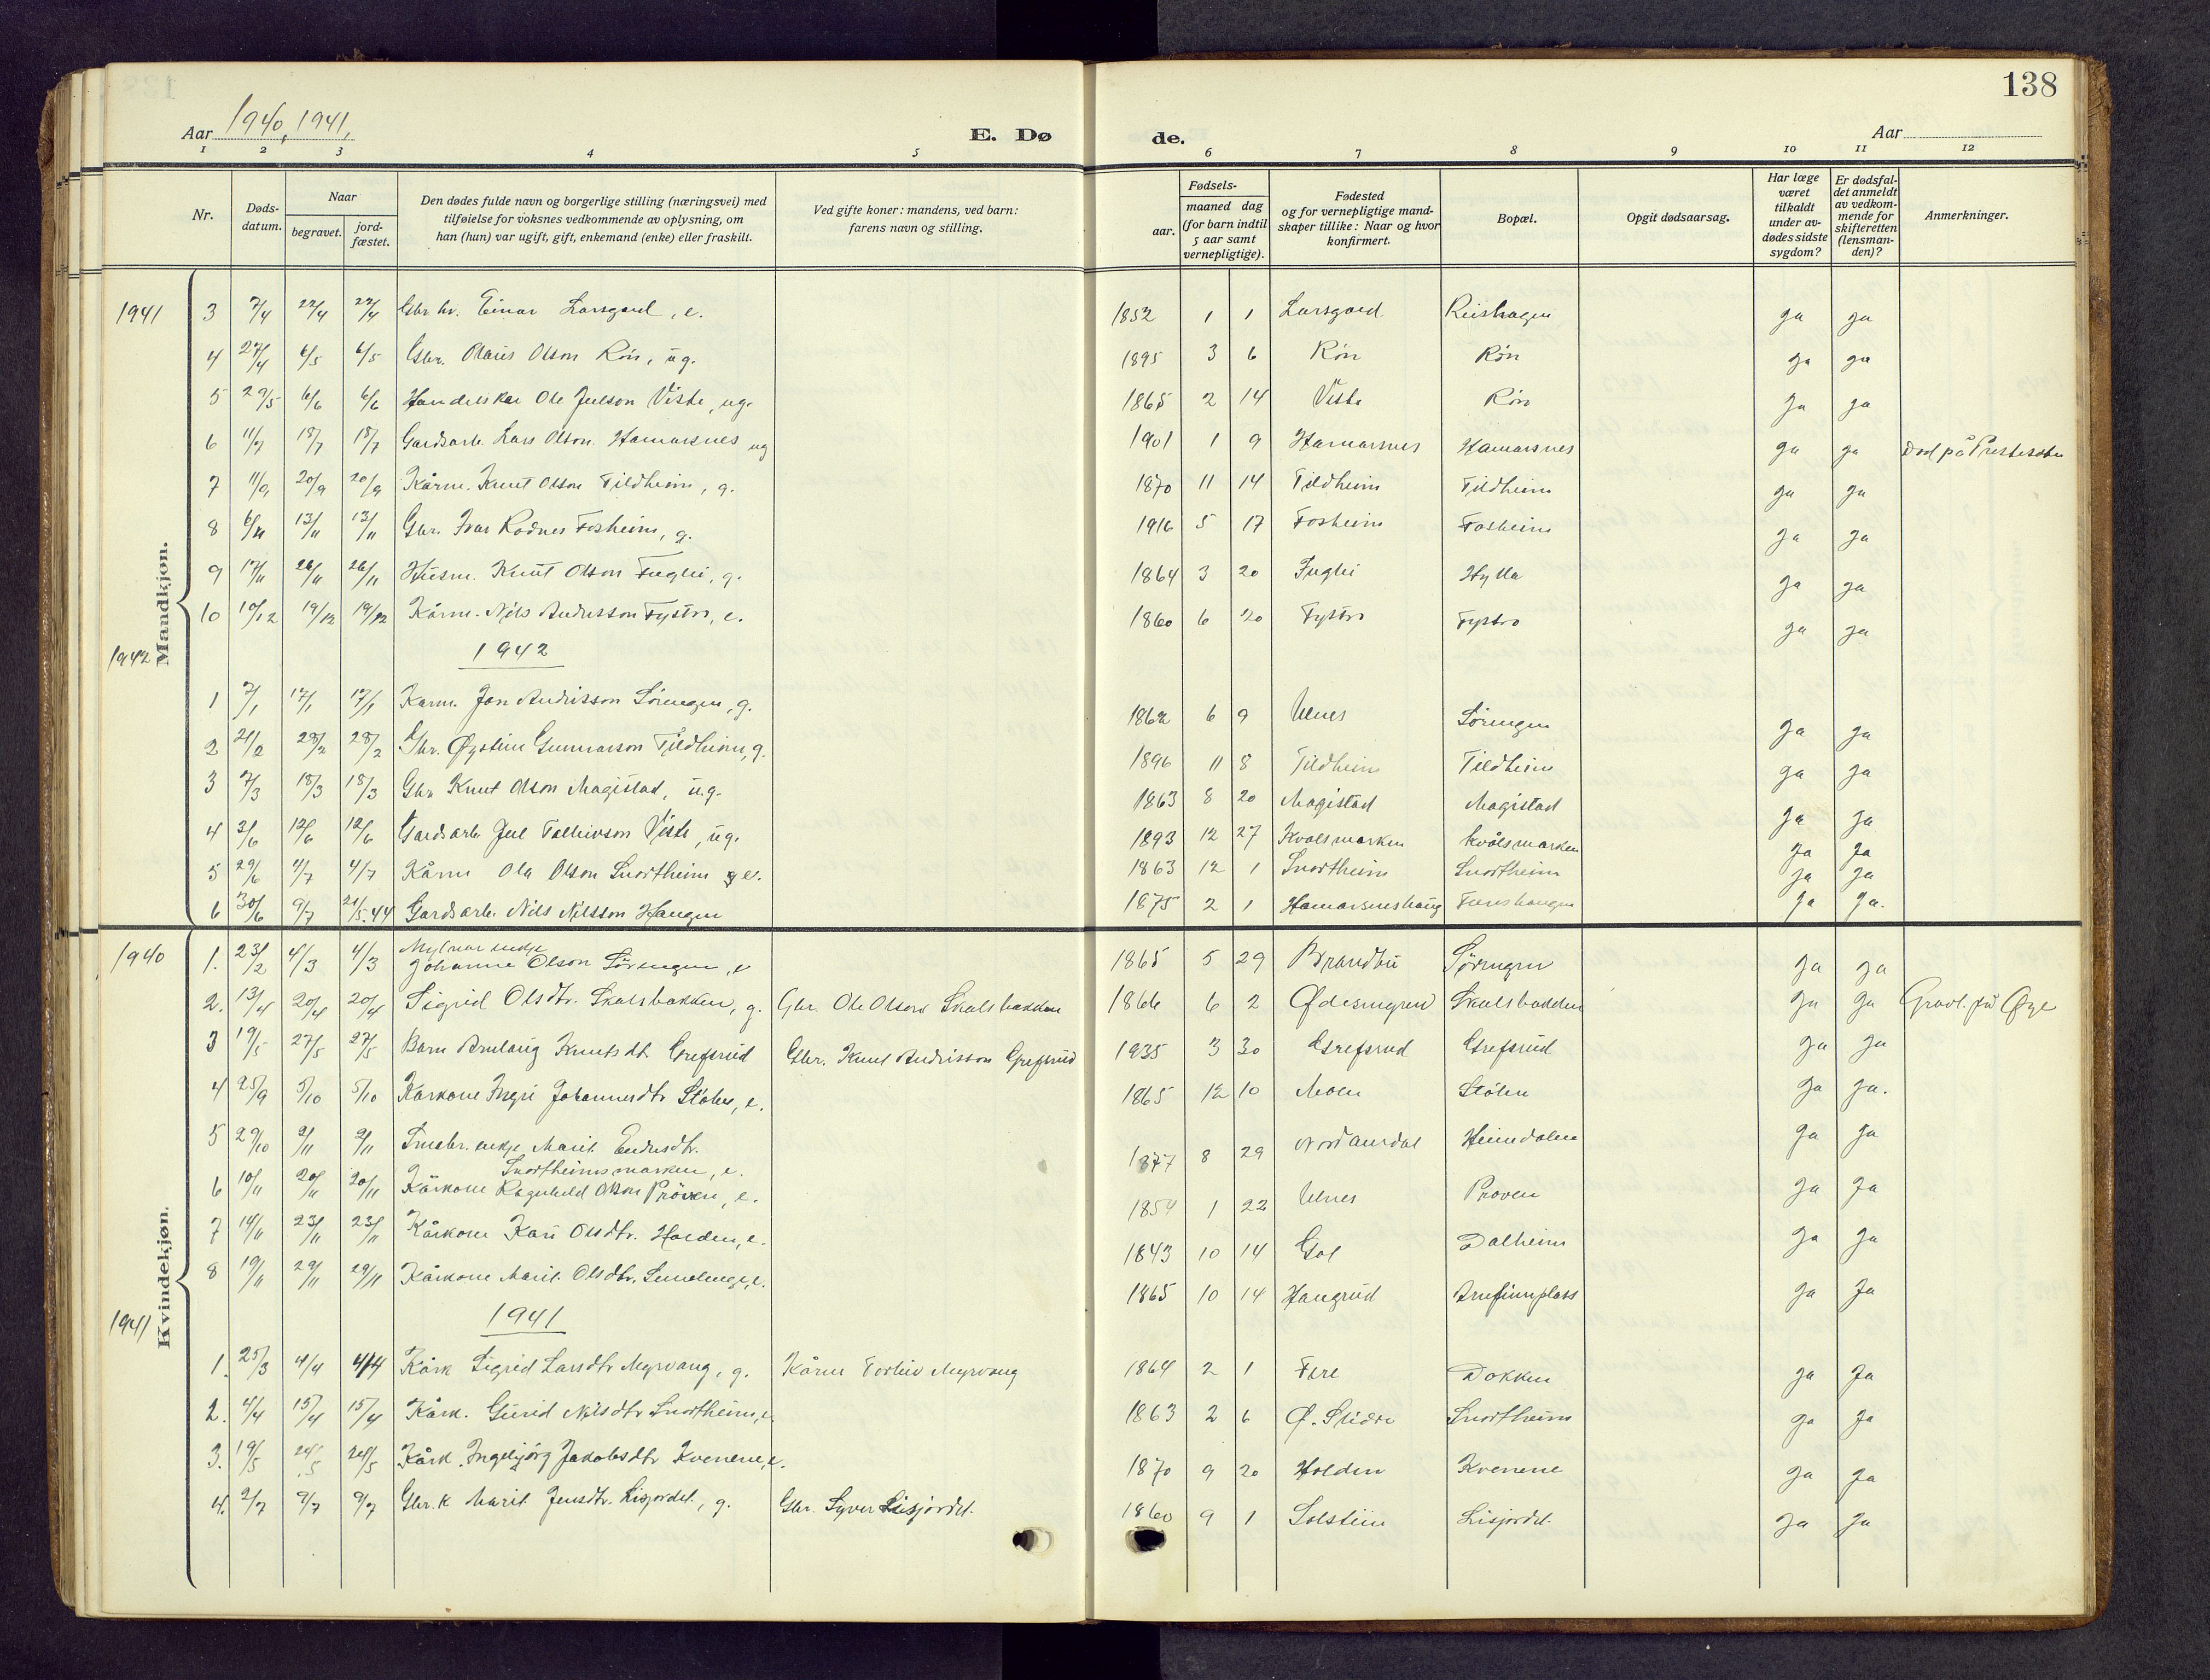 138
Aar 1940, 1941,
E. Dø de.
Aar
1 2 3 4 5 6 7 8 9 10 11 12
Nr.
Døds-
datum.
Naar
begravet.
jord-
fæstet.
Den dødes fulde navn og borgerlige stilling (næringsvei) med
tilføielse for voksnes vedkommende av oplysning, om
han (hun) var ugift, gift, enkemand (enke) eller fraskilt.
Ved gifte koner: mandens, ved barn:
farens navn og stilling.
Fødsels-
aar.
maaned dag
(for barn indtil
5 aar samt
vernepligtige).
Fødested
og for vernepligtige mand-
skaper tillike: Naar og hvor
konfirmert.
Bopæl.
Opgit dødsaarsag.
Har læge
været
tilkaldt
under av-
dødes sidste
sygdom?
Er dødsfal-
det anmeldt
av vedkom-
mende for
skifteretten
(lensman-
den)?
Anmerkninger.
Mandkjøn.
1941 3 7/4 22/4 22/4 Gbr. Einar Larsgard, e. 1852 1 1 Larsgard Reishagen ja ja
4 27/4 6/5 6/5 Gbr. Olaus Olson Rön, ug. 1895 3 6 Rön Rön ja ja
5 29/5 6/6 6/6 Ole Julson Viste, ug. 1865 2 14 Viste Rön ja ja
6 11/7 18/7 18/7 Gardsarb. Lars Olson Hamarsnes ug 1901 1 9 Hamarsnes Hamarsnes ja ja Död på
7 11/9 20/9 20/9 Kårm. Knut Olson Tildheim, g. 1870 11 14 Tildheim Tildheim ja ja
8 6/11 13/11 13/11 Gbr. Ivar Rodnes Fosheim, g. 1916 5 17 Fosheim Fosheim ja ja
9 17/11 26/11 26/11 Husm. Knut Olson Fuglei, g. 1864 3 20 Fuglei Hylla ja ja
10 10/12 19/12 19/12 Kårm. Nils Andersson Fystro, e. 1860 6 20 Fystro Fystro ja ja
1942 1942
1 7/1 17/1 17/1 Karm. Jon Andrisson Sörengen, g. 1862 6 9 Ulnes Sörengen ja ja
2 21/2 28/2 28/2 Gbr. Øystein Gunnarson Tildheim, g. 1896 11 8 Tildheim Tildheim ja ja
3 7/3 18/3 18/3 Gbr. Knut Olson Magistad, ug. 1863 8 20 Magistad Magistad ja ja
4 3/6 12/6 12/6 Gardsarb. Jul Tolleivson Viste, ug. 1893 12 27 Kvålsmarken Kvålsmarken ja ja
5 29/6 4/7 4/7 Kårm Ola Olson Snortheim e. 1863 12 1 Snortheim Snortheim ja ja
6 30/6 9/7 21/5.44 Gardsarb. Nils Nilsson Haugen 1875 2 1 Hamarsneshaug ja ja.
Kvindekjøn.
1940 1. 23/2 4/3 4/3
Johanne Olson Sörengen, e 1865 5 29 Brandbu Sörengen ja ja
2. 13/4 20/4 20/4 Sigrid Olsdtr. Skalsbakken, g. Gbr. Ole Olson Skalsbakken 1866 6 2 Ødesengård Skalsbakken ja ja Gravl. på Øye
3 19/5 27/5 27/5 Barn Anlaug Knutsdt. Grefsrud Gbr. Knut Andrisson Grefsrud 1935 3 30 Grefsrud Grefsrud ja ja
4 25/9 5/10 5/10 Kårkone Ingri Johannesdtr Stölen, e. 1865 12 10 Moen Stölen ja ja.
5 29/10 9/11 9/11 Smabr. enkje Marit Endresdtr. 1877 8 29 Nord Aurdal Heimdalen ja ja
Snortheimsmarken, e.
6 10/11 20/11 20/11 Kårkone Ragnhild Olson Pröven, e. 1854 1 22 Ulnes Pröven ja ja
7 14/11 23/11 23/11 Kårkone Kari Olsdtr. Holden, e. 1843 10 14 Gol Dalheim ja ja
8 19/11 29/11 29/11 Kårkone Marit Olsdtr. 1865 10 14 Haugrud ja ja
1941 1941
1. 25/3 4/4 4/4 Kårk Sigrid Larsdtr Myrvang, g. Kårm Torleiv Myrvang 1864 2 1 Fere Dokken ja ja
2. 4/4 15/4 15/4 Kårk. Gurid Nilsdtr Snortheim, e. 1863 2 6 Ø. Slidre Snortheim ja ja
3. 19/5 28/5 28/5 Kårk. Ingebjörg Jakobsdtr Kvenene, e. 1870 9 20 Holden Kvenene ja ja
4. 2/7 9/7 9/7 Gbr.k Marit Jensdtr. Lisjordet, g. Gbr. Syver Lisjordet. 1860 9 1 Solstein Lisjordet ja ja